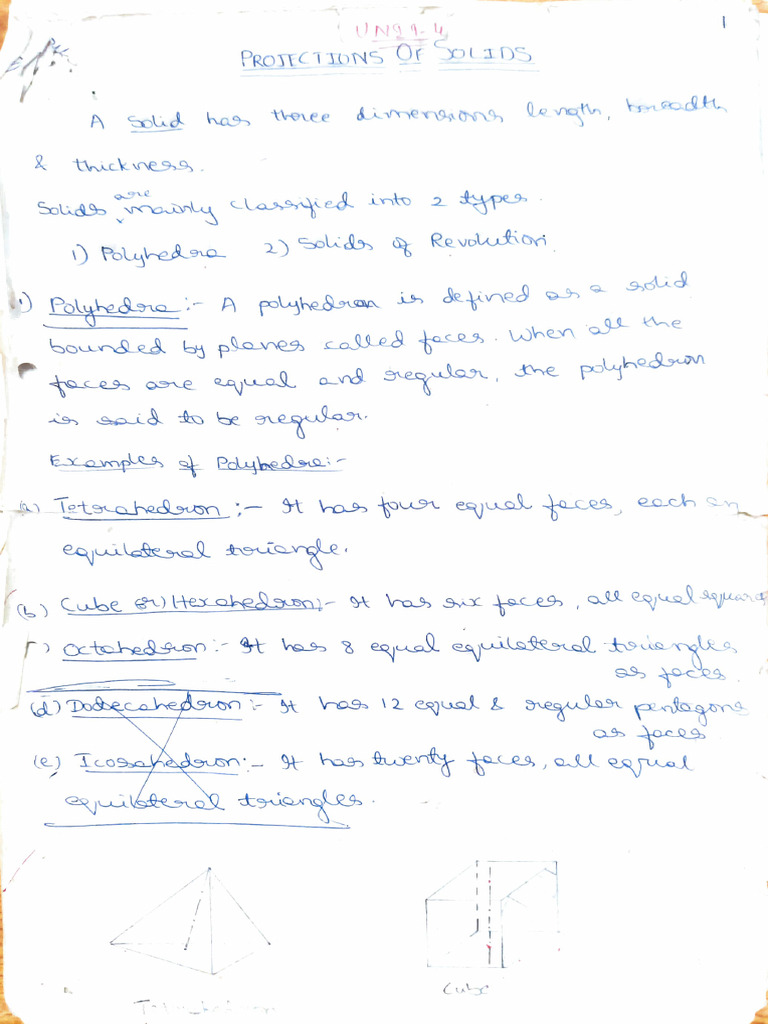 1
UNIT-4
PROJECTIONS OF SOLIDS
A solid has three dimensions length, breadth
& thickness.
Solids are mainly classified into 2 types.
1) Polyhedra 2) Solids of Revolution.
1) Polyhedra :- A polyhedron is defined as a solid
bounded by planes called faces. When all the
faces are equal and regular, the polyhedron
is said to be regular.
Examples of Polyhedra:-
(a) Tetrahedron :- It has four equal faces, each an
equilateral triangle.
(b) Cube (or) Hexahedron:- It has six faces, all equal squares
) Octahedron :- It has 8 equal equilateral triangles
as faces.
(d) Dodecahedron :- It has 12 equal & regular pentagons
as faces
(e) Icosahedron :- It has twenty faces, all equal
equilateral triangles.
Tetrahedron
Cube